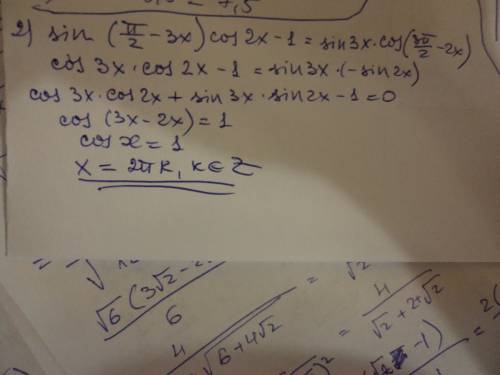 2) sin (π/2 − 3x) cos 2x − 1 = sin 3x · cos (3π/2 − 2x)
cos 3x · cos 2x − 1 = sin 3x · (− sin 2x)
cos 3x · cos 2x + sin 3x · sin 2x − 1 = 0
cos (3x − 2x) = 1
cos x = 1
x = 2πk, k ∈ Z
√6 (3√2 − 2
6
=
√2
4
√6 + 4√2
=
4
√2 + 2√2